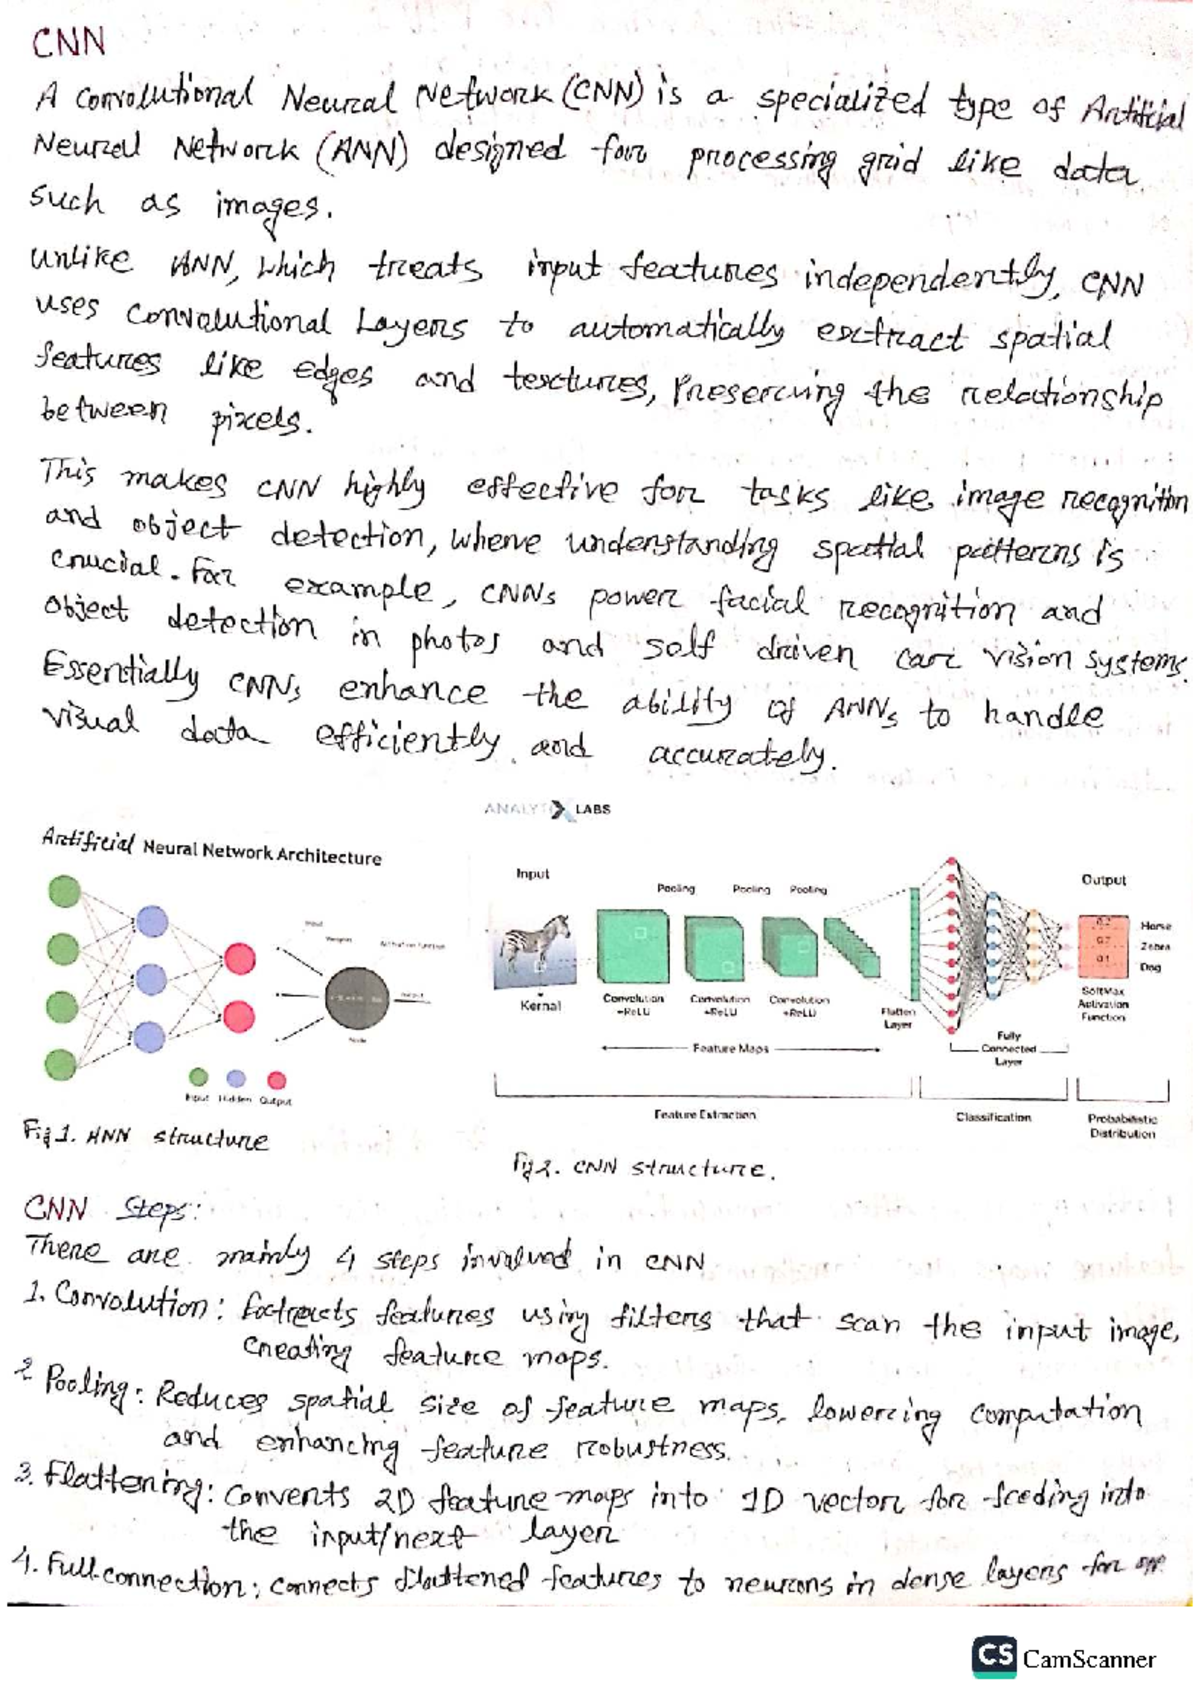 CNN
A Convolutional Neural Network (CNN) is a specialized type of Artificial
Neural Network (ANN) designed for processing grid like data
such as images.
Unlike ANN, which treats input features independently, CNN
uses Convolutional Layers to automatically extract spatial
features like edges and textures, preserving the relationship
between pixels.
This makes CNN highly effective for tasks like image recognition
and object detection, where understanding spatial patterns is
crucial. For example, CNNs power facial recognition and
object detection in photos and self driven car vision systems.
Essentially CNNs enhance the ability of ANNs to handle
visual data efficiently and accurately.
ANALYTIXLABS
Artificial Neural Network Architecture
Input
Output
Node
Input Hidden Output
Fig 1. ANN structure
Input
Pooling Pooling Pooling
Output
Kernal
Convolution +ReLU
Convolution +ReLU
Convolution +ReLU
Flatten Layer
Feature Maps
Fully Connected Layer
0.2
0.7
0.1
Horse
Zebra
Dog
SoftMax Activation Function
Feature Extraction
Classification
Probabilistic Distribution
Fig 2. CNN structure.
CNN Steps:
There are mainly 4 steps involved in CNN
1. Convolution: Extracts features using filters that scan the input image,
creating feature maps.
2 Pooling: Reduces spatial size of feature maps, lowering computation
and enhancing feature robustness.
3. Flattening: Converts 2D feature maps into 1D vector for feeding into
the input/next layer
4. Full-connection: connects flattened features to neurons in dense layers for
CS CamScanner